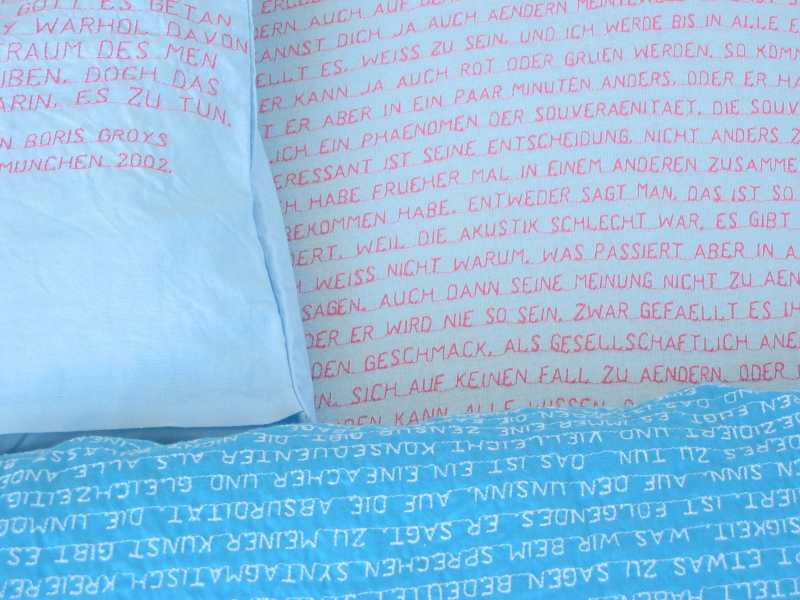 GOTT ES GETAN
Y WARHOL DAVON
TRAUM DES MEN
IBEN. DOCH DAS
ARIN, ES ZU TUN.
N BORIS GROYS
MÜNCHEN 2002.
ERN AUCH AUF
ANNST DICH JA AUCH AENDERN
ELLT ES, WEISS ZU SEIN. UND ICH WERDE BIS IN ALLE E
ER KANN JA AUCH ROT ODER GRUEN WERDEN. SO KOMM
T ER ABER IN EIN PAAR MINUTEN ANDERS. ODER ER HA
LICH EIN PHAENOMEN DER SOUVERAENITAET. DIE SOUV
ERESSANT IST SEINE ENTSCHEIDUNG, NICHT ANDERS Z
H HABE FRUEHER MAL IN EINEM ANDEREN ZUSAMME
BEKOMMEN HABE. ENTWEDER SAGT MAN, DAS IST SO
DERT, WEIL DIE AKUSTIK SCHLECHT WAR, ES GIBT
H WEISS NICHT WARUM. WAS PASSIERT ABER IN A
SAGEN, AUCH DANN SEINE MEINUNG NICHT ZU AEN
DER ER WIRD NIE SO SEIN. ZWAR GEFAELLT ES IH
DEN GESCHMACK, ALS GESELLSCHAFTLICH ANE
N, SICH AUF KEINEN FALL ZU AENDERN. ODER
KANN. ALLE WISSEN, D
TITELT HABEN. BEDEUTET
T ETWAS ZU SAGEN BEDEUTET SYNTAGMATISCH KREIEREN
SIGKEIT. WAS WIR BEIM SPRECHEN
TIERT, IST FOLGENDES. ER SAGT, ZU MEINER KUNST GIBT ES
N SINN, AUF DEN UNSINN, AUF DIE ABSURDITÄT. DIE UNMÖG
ZU TUN. DAS IST EIN EINFACHER UND GLEICHZEITIG
ZIDIERT UND VIELLEICHT KONSEQUENTER ALS ALLE ANDE
ES IMMER EINE ZENSUR GIBT. DIE